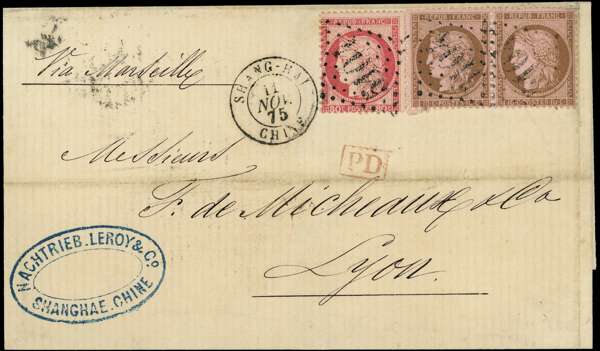 Via Marseille
SHANG-HAI
11
NOV.
75
CHINE
REPUB. FRANC.
REPUB. FRANC.
REPUB. FRANC.
5104
5104
PD
Messieurs
F. de Micheaux & Co
Lyon.
NACHTRIEB. LEROY & Co
SHANGHAE. CHINE